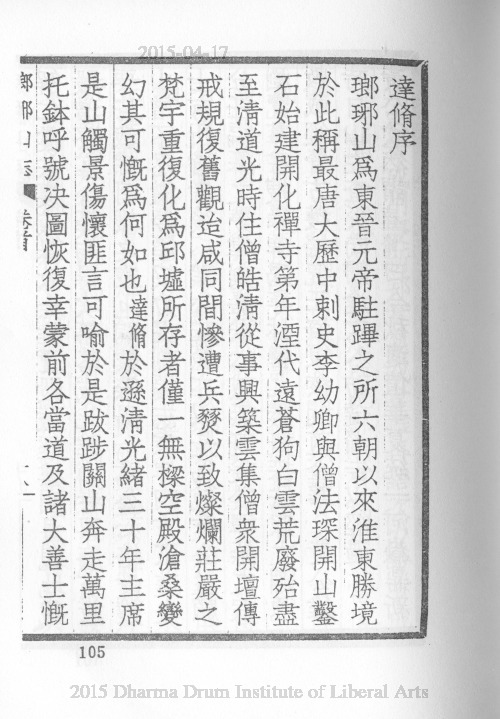 2015-04-17
達脩序
瑯琊山爲東晉元帝駐蹕之所六朝以來淮東勝境
於此稱最唐大歷中刺史李幼卿與僧法琛開山鑿
石始建開化禪寺第年湮代遠蒼狗白雲荒廢殆盡
至淸道光時住僧皓淸從事興築雲集僧衆開壇傳
戒規復舊觀迨咸同間慘遭兵燹以致燦爛莊嚴之
梵宇重復化爲邱墟所存者僅一無樑空殿滄桑變
幻其可慨爲何如也達脩於遜淸光緒三十年主席
是山觸景傷懷匪言可喻於是跋踄關山奔走萬里
托鉢呼號决圖恢復幸蒙前各當道及諸大善士慨
瑯琊山志 卷首
105
2015 Dharma Drum Institute of Liberal Arts